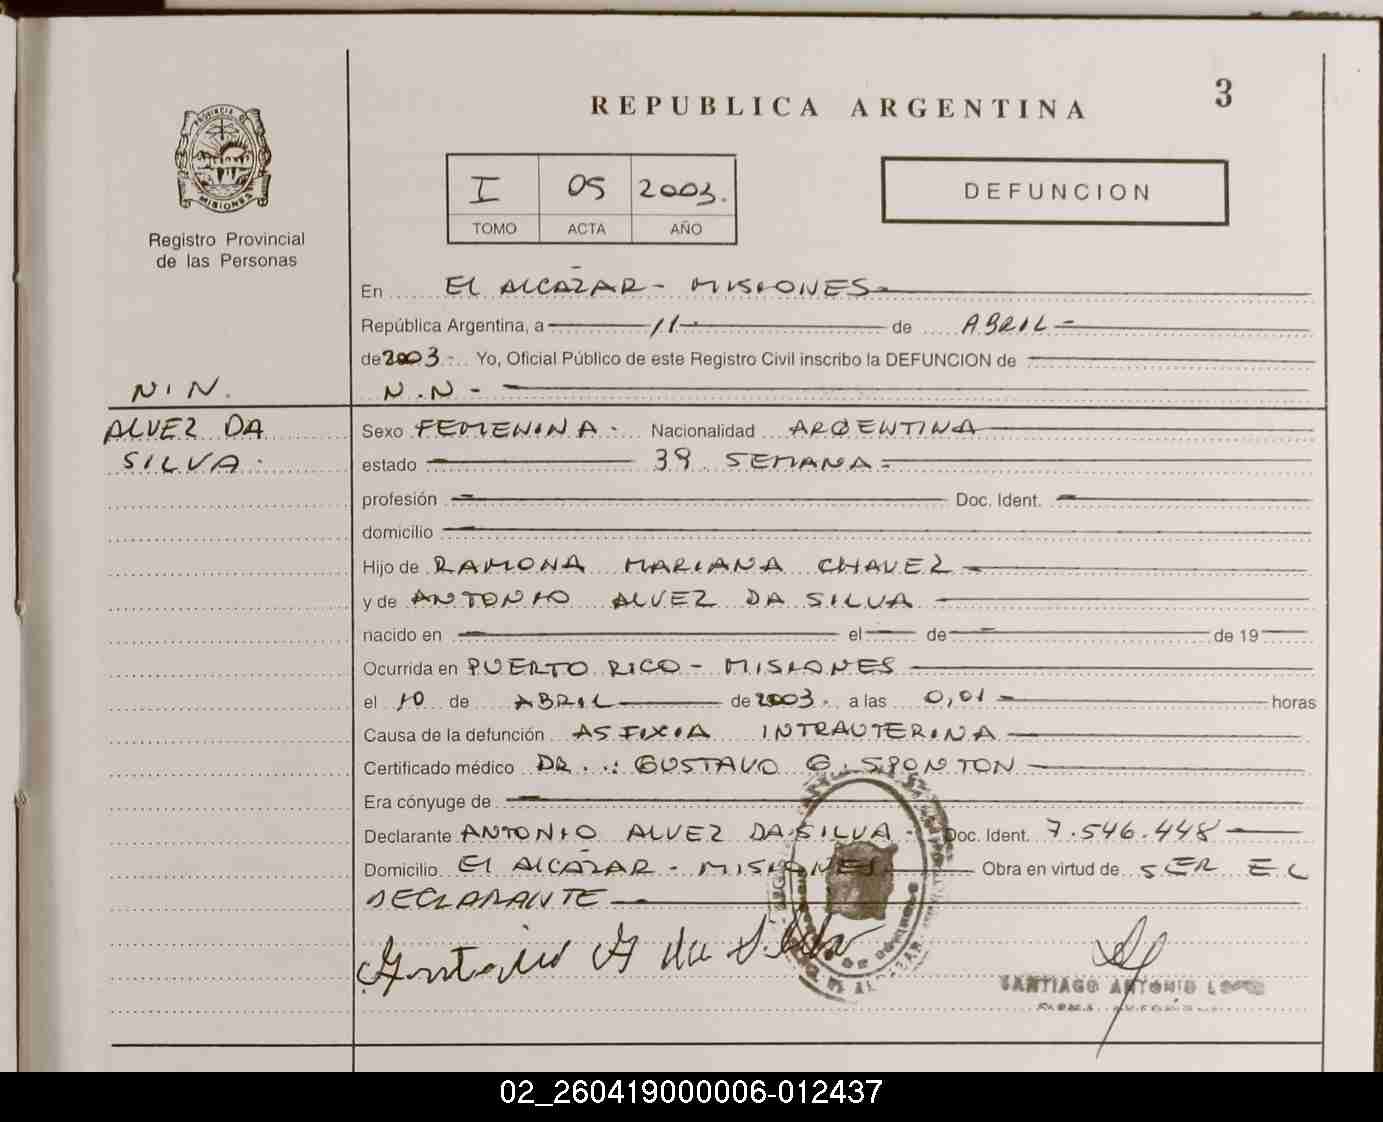 3
REPUBLICA ARGENTINA
PROVINCIA DE
MISIONES
Registro Provincial
de las Personas
I 05 2003.
TOMO ACTA AÑO
DEFUNCION
En EL ALCAZAR - MISIONES
República Argentina, a 11 de ABRIL -
de 2003 - Yo, Oficial Público de este Registro Civil inscribo la DEFUNCION de
N.N. N.N -
ALVEZ DA Sexo FEMENINA - Nacionalidad ARGENTINA
SILVA. estado 39 SEMANA -
profesión Doc. Ident.
domicilio
Hijo de RAMONA MARIANA CHAVEZ
y de ANTONIO ALVEZ DA SILVA
nacido en el de de 19
Ocurrida en PUERTO RICO - MISIONES
el 10 de ABRIL de 2003. a las 0,01 horas
Causa de la defunción ASFIXIA INTRAUTERINA
Certificado médico DR.: GUSTAVO G. SPONTON
Era cónyuge de
Declarante ANTONIO ALVEZ DA SILVA - Doc. Ident. 7.546.448
Domicilio EL ALCAZAR - MISIONES Obra en virtud de SER EL
DECLARANTE
Antonio A da Silva
SANTIAGO ANTONIO LOPEZ
02_260419000006-012437